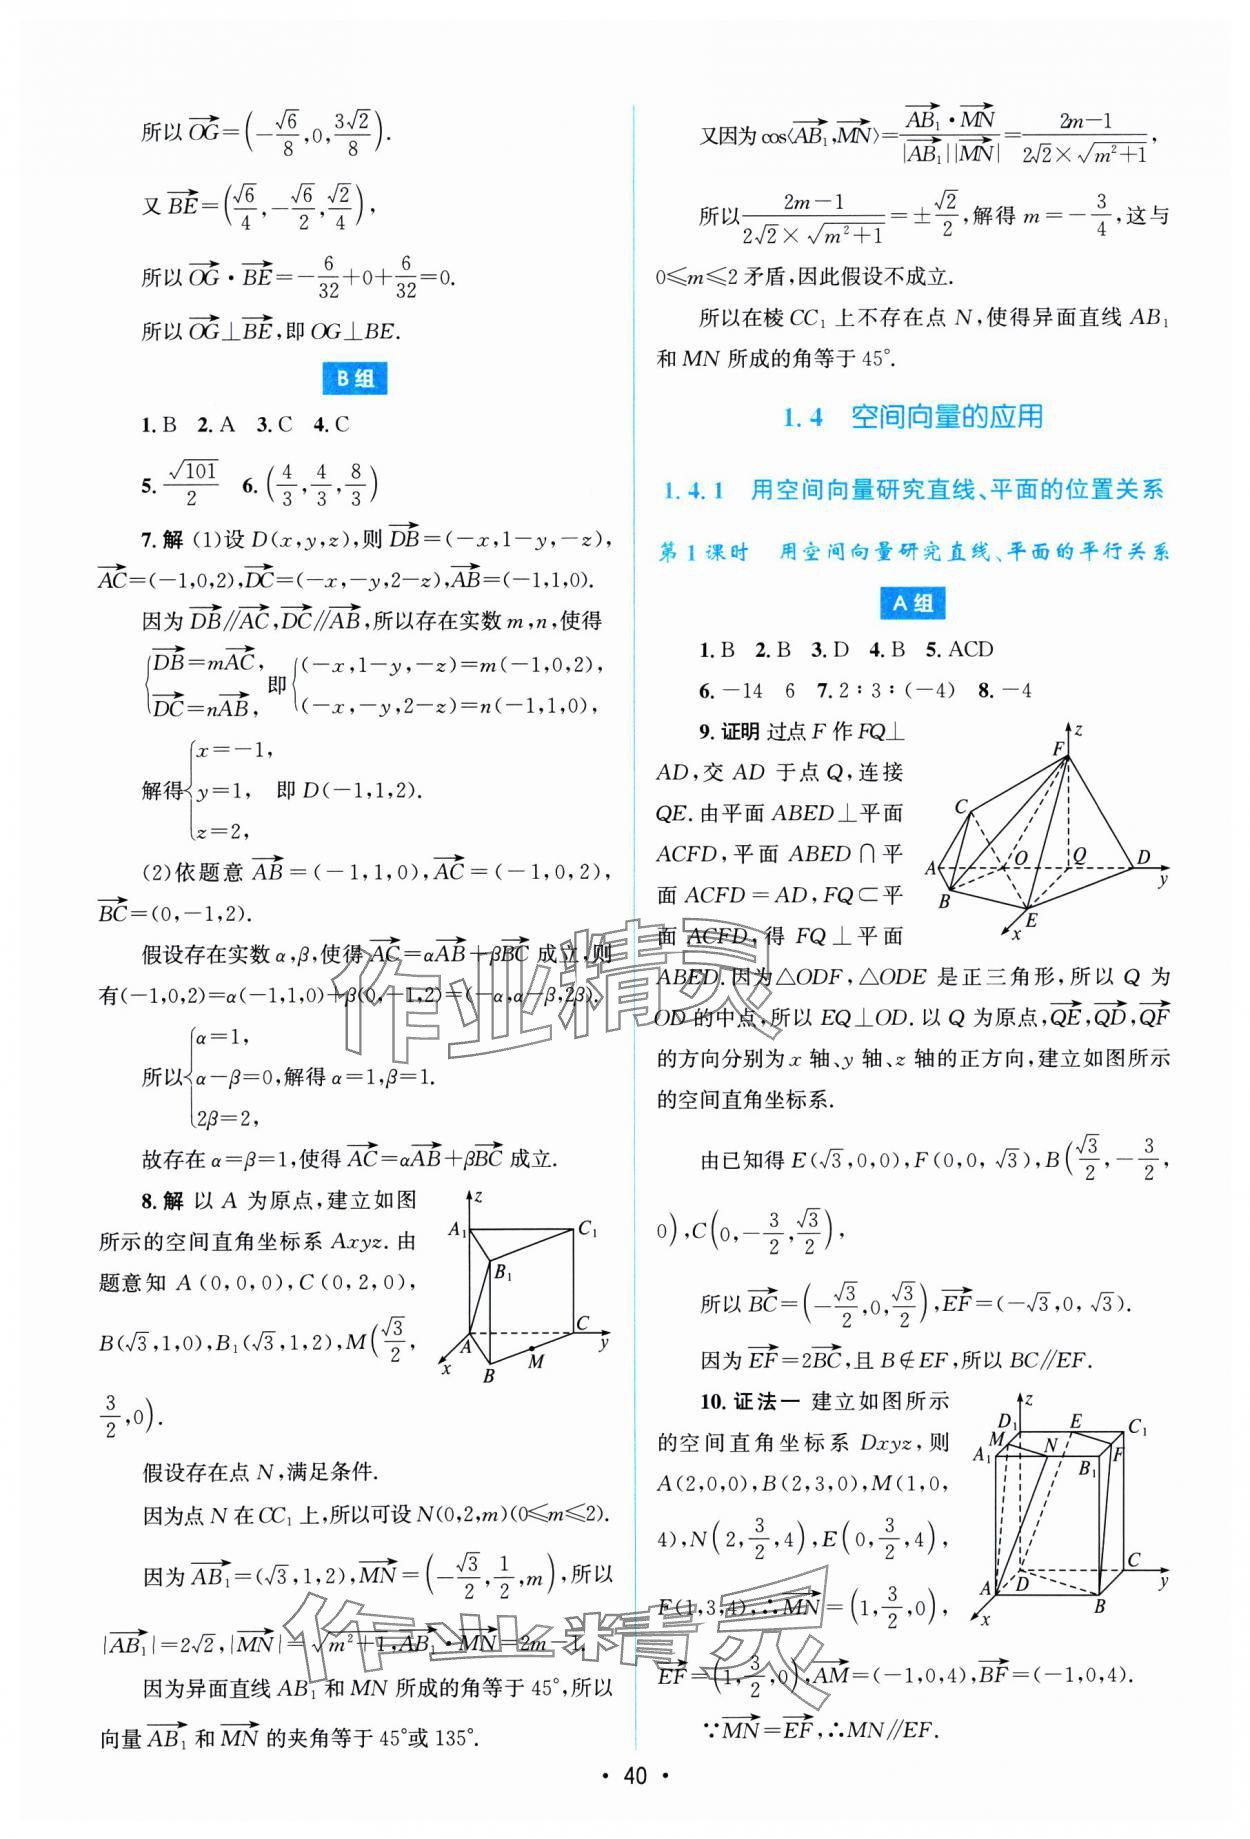 所以 $\overrightarrow{OG}=\left(-\frac{\sqrt{6}}{8},0,\frac{3\sqrt{2}}{8}\right)$.
又 $\overrightarrow{BE}=\left(\frac{\sqrt{6}}{4},-\frac{\sqrt{6}}{2},\frac{\sqrt{2}}{4}\right)$,
所以 $\overrightarrow{OG}\cdot\overrightarrow{BE}=-\frac{6}{32}+0+\frac{6}{32}=0$.
所以 $\overrightarrow{OG}\perp\overrightarrow{BE}$,即 OG⊥BE.
B 组
1. B 2. A 3. C 4. C
5. $\frac{\sqrt{101}}{2}$ 6. $\left(\frac{4}{3},\frac{4}{3},\frac{8}{3}\right)$
7. 解 (1)设 D(x,y,z),则 $\overrightarrow{DB}$=(-x,1-y,-z),
$\overrightarrow{AC}$=(-1,0,2),$\overrightarrow{DC}$=(-x,-y,2-z),$\overrightarrow{AB}$=(-1,1,0).
因为 $\overrightarrow{DB}$∥$\overrightarrow{AC}$,$\overrightarrow{DC}$∥$\overrightarrow{AB}$,所以存在实数 m,n,使得
$\begin{cases}\overrightarrow{DB}=m\overrightarrow{AC},\\ \overrightarrow{DC}=n\overrightarrow{AB},\end{cases}$ 即 $\begin{cases}(-x,1-y,-z)=m(-1,0,2),\\ (-x,-y,2-z)=n(-1,1,0),\end{cases}$
解得 $\begin{cases}x=-1,\\ y=1,\\ z=2,\end{cases}$ 即 D(-1,1,2).
(2)依题意 $\overrightarrow{AB}$=(-1,1,0),$\overrightarrow{AC}$=(-1,0,2),
$\overrightarrow{BC}$=(0,-1,2).
假设存在实数 α,β,使得 $\overrightarrow{AC}=α\overrightarrow{AB}+β\overrightarrow{BC}$ 成立,则
有(-1,0,2)=α(-1,1,0)+β(0,-1,2)=(-α,α-β,2β).
所以 $\begin{cases}α=1,\\ α-β=0,\\ 2β=2,\end{cases}$ 解得 α=1,β=1.
故存在 α=β=1,使得 $\overrightarrow{AC}=α\overrightarrow{AB}+β\overrightarrow{BC}$ 成立.
8. 解 以 A 为原点,建立如图
所示的空间直角坐标系 Axyz. 由
题意知 A(0,0,0),C(0,2,0),
B($\sqrt{3}$,1,0),B₁($\sqrt{3}$,1,2),M$\left(\frac{\sqrt{3}}{2},\right.$
$\left.\frac{3}{2},0\right)$.
z A₁ C₁ B₁ A C y x B M
假设存在点 N,满足条件.
因为点 N 在 CC₁ 上,所以可设 N(0,2,m)(0≤m≤2).
因为 $\overrightarrow{AB_1}$=($\sqrt{3}$,1,2),$\overrightarrow{MN}=\left(-\frac{\sqrt{3}}{2},\frac{1}{2},m\right)$,所以
|$\overrightarrow{AB_1}$|=2$\sqrt{2}$,|$\overrightarrow{MN}$|=$\sqrt{m^2+1}$,$\overrightarrow{AB_1}\cdot\overrightarrow{MN}$=2m-1.
因为异面直线 AB₁ 和 MN 所成的角等于 45°,所以
向量 $\overrightarrow{AB_1}$ 和 $\overrightarrow{MN}$ 的夹角等于 45°或 135°.
又因为 cos⟨$\overrightarrow{AB_1}$,$\overrightarrow{MN}$⟩=$\frac{\overrightarrow{AB_1}\cdot\overrightarrow{MN}}{|\overrightarrow{AB_1}||\overrightarrow{MN}|}=\frac{2m-1}{2\sqrt{2}\times\sqrt{m^2+1}}$,
所以 $\frac{2m-1}{2\sqrt{2}\times\sqrt{m^2+1}}=\pm\frac{\sqrt{2}}{2}$,解得 m=$-\frac{3}{4}$,这与
0≤m≤2 矛盾,因此假设不成立.
所以在棱 CC₁ 上不存在点 N,使得异面直线 AB₁
和 MN 所成的角等于 45°.
1.4 空间向量的应用
1.4.1 用空间向量研究直线、平面的位置关系
第 1 课时 用空间向量研究直线、平面的平行关系
A 组
1. B 2. B 3. D 4. B 5. ACD
6. -14 6 7. 2∶3∶(-4) 8. -4
9. 证明 过点 F 作 FQ⊥
AD,交 AD 于点 Q,连接
QE. 由平面 ABED⊥平面
ACFD,平面 ABED∩平
面 ACFD=AD,FQ⊂平
面 ACFD,得 FQ⊥平面
z F C A O Q D y B E x
ABED. 因为△ODF,△ODE 是正三角形,所以 Q 为
OD 的中点,所以 EQ⊥OD. 以 Q 为原点,$\overrightarrow{QE}$,$\overrightarrow{QD}$,$\overrightarrow{QF}$
的方向分别为 x 轴、y 轴、z 轴的正方向,建立如图所示
的空间直角坐标系.
由已知得 E($\sqrt{3}$,0,0),F(0,0,$\sqrt{3}$),B$\left(\frac{\sqrt{3}}{2},-\frac{3}{2},\right.$
$\left.0\right)$,C$\left(0,-\frac{3}{2},\frac{\sqrt{3}}{2}\right)$,
所以 $\overrightarrow{BC}=\left(-\frac{\sqrt{3}}{2},0,\frac{\sqrt{3}}{2}\right)$,$\overrightarrow{EF}$=(-$\sqrt{3}$,0,$\sqrt{3}$).
因为 $\overrightarrow{EF}=2\overrightarrow{BC}$,且 B∉EF,所以 BC∥EF.
10. 证法一 建立如图所示
的空间直角坐标系 Dxyz,则
A(2,0,0),B(2,3,0),M(1,0,
4),N$\left(2,\frac{3}{2},4\right)$,E$\left(0,\frac{3}{2},4\right)$,
F(1,3,4),∴$\overrightarrow{MN}=\left(1,\frac{3}{2},0\right)$,
z D₁ E C₁ M N F A₁ B₁ A D C y x B
$\overrightarrow{EF}=\left(1,\frac{3}{2},0\right)$,$\overrightarrow{AM}$=(-1,0,4),$\overrightarrow{BF}$=(-1,0,4).
∵$\overrightarrow{MN}=\overrightarrow{EF}$,∴MN∥EF.
· 40 ·
作业精灵
作业精灵